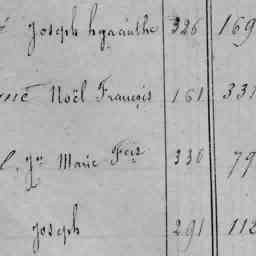 Joseph hyacinthe 326 169
Noël François 161 331
Jn Marie Fçis 336 79
Joseph 291 112